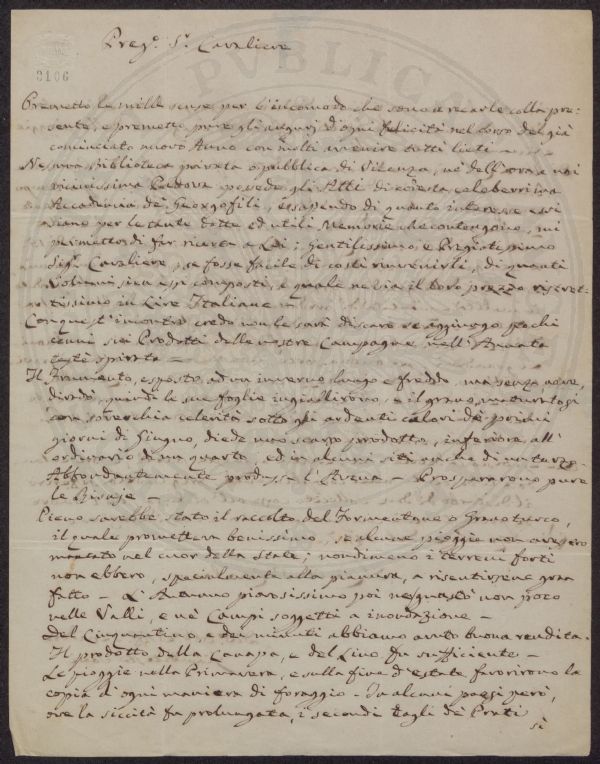 Preg.º S.r Cavaliere
3106
PVBLICA
Premetto le mille scuse per l'incomodo che sono a recarle colla pre=
sente, e premetto pure gli auguri d'ogni felicità nel corso del già
cominciato nuovo Anno con molti avvenire tutti lieti —
Nessuna Biblioteca privata o pubblica di Vicenza, nè dell'ora a noi
vicinissima Padova possede gli Atti di codesta celeberrima
Accademia dei Georgofili, e sapendo di quanto interesse essi
siano per le tante dotte ed utili Memorie che contengono, mi
permetto di far ricerca a Lei, Gentilissimo e Pregiatissimo
Sig.r Cavaliere, se fosse facile di costì rinvenirli, di quanti
Volumi sieno composti, e quale ne sia il loro prezzo ristret=
tissimo in Lire Italiane —
Con quest'incontro credo non le sarà discaro se aggiungo pochi
cenni sui Prodotti delle nostre Campagne nell'Annata
testè spirata —
Il Frumento, esposto ad un inverno lungo e freddo, ma senza neve,
diradò, quindi le sue foglie ingiallirono, e il grano, maturatosi
con soverchia celerità sotto gli ardenti calori dei primi
giorni di Giugno, diede uno scarso prodotto, inferiore all'
ordinario di un quarto, ed in alcuni siti anche di un terzo.
Abbondantemente produsse l'Avena — Prosperarono pure
le Biade —
Pieno sarebbe stato il raccolto del Formentone o Granoturco,
il quale prometteva benissimo, se alcune pioggie non avessero
mancato nel cuor della State; nondimeno i terreni forti
non ebbero, specialmente alla pianura, a risentirsene gran
fatto — L'Autunno piovosissimo poi ne guastò non poco
nelle Valli, e ne' Campi soggetti a inondazione —
Del Cinquantino, e dei minuti abbiamo avuto buona rendita.
Il prodotto della Canapa, e del Lino fu sufficiente —
Le pioggie nella Primavera, e sulla fine d'estate favorirono la
copia d'ogni maniera di foraggio — In alcuni paesi però,
ove la siccità fu prolungata, i secondi tagli de' Prati
si